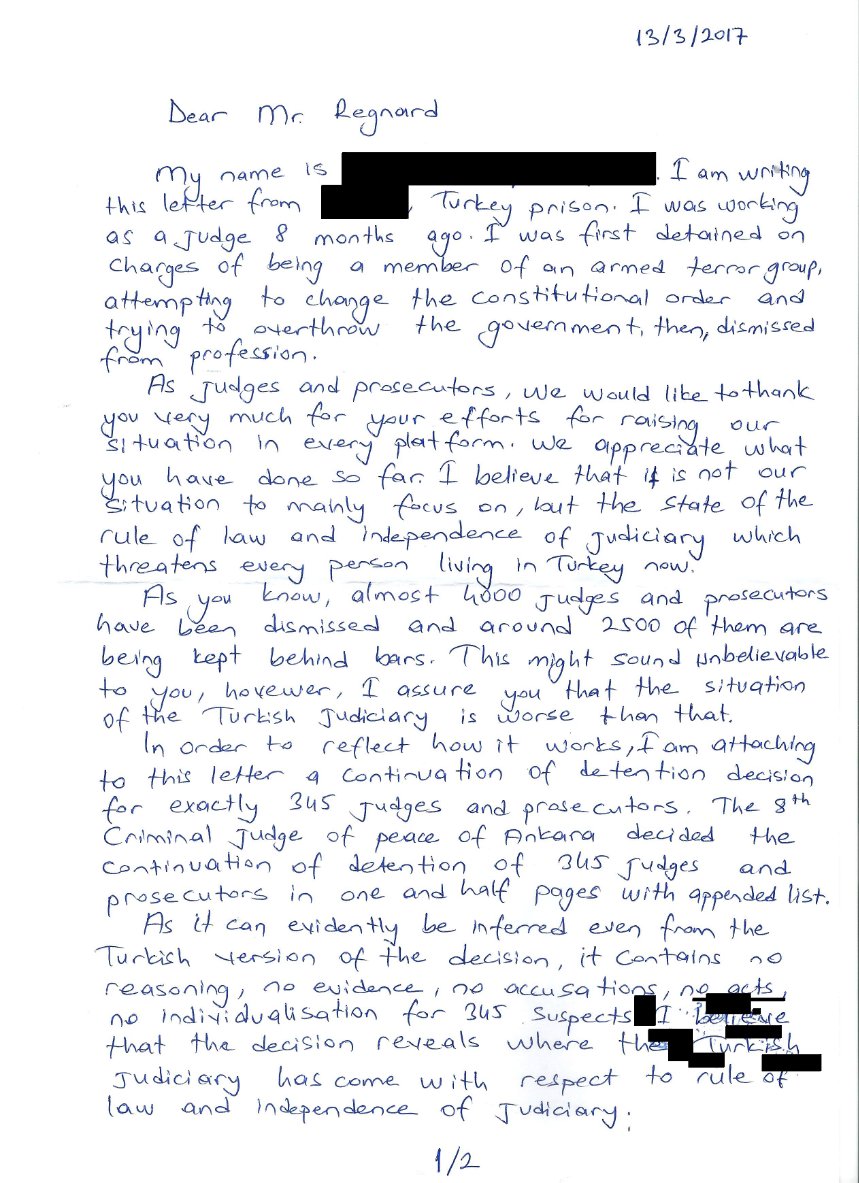 13/3/2017
Dear Mr. Regnard
My name is . I am writing
this letter from , Turkey prison. I was working
as a judge 8 months ago. I was first detained on
charges of being a member of an armed terror group,
attempting to change the constitutional order and
trying to overthrow the government, then, dismissed
from profession.
As judges and prosecutors, we would like to thank
you very much for your efforts for raising our
situation in every platform. We appreciate what
you have done so far. I believe that it is not our
situation to mainly focus on, but the state of the
rule of law and independence of judiciary which
threatens every person living in Turkey now.
As you know, almost 4000 judges and prosecutors
have been dismissed and around 2500 of them are
being kept behind bars. This might sound unbelievable
to you, hovewer, I assure you that the situation
of the Turkish Judiciary is worse than that.
In order to reflect how it works, I am attaching
to this letter a continuation of detention decision
for exactly 345 judges and prosecutors. The 8th
Criminal Judge of peace of Ankara decided the
continuation of detention of 345 judges and
prosecutors in one and half pages with appended list.
As it can evidently be inferred even from the
Turkish version of the decision, it contains no
reasoning, no evidence, no accusations, no acts,
no individualisation for 345 suspects I believe
that the decision reveals where the Turkish
Judiciary has come with respect to rule of
law and independence of judiciary.
1/2